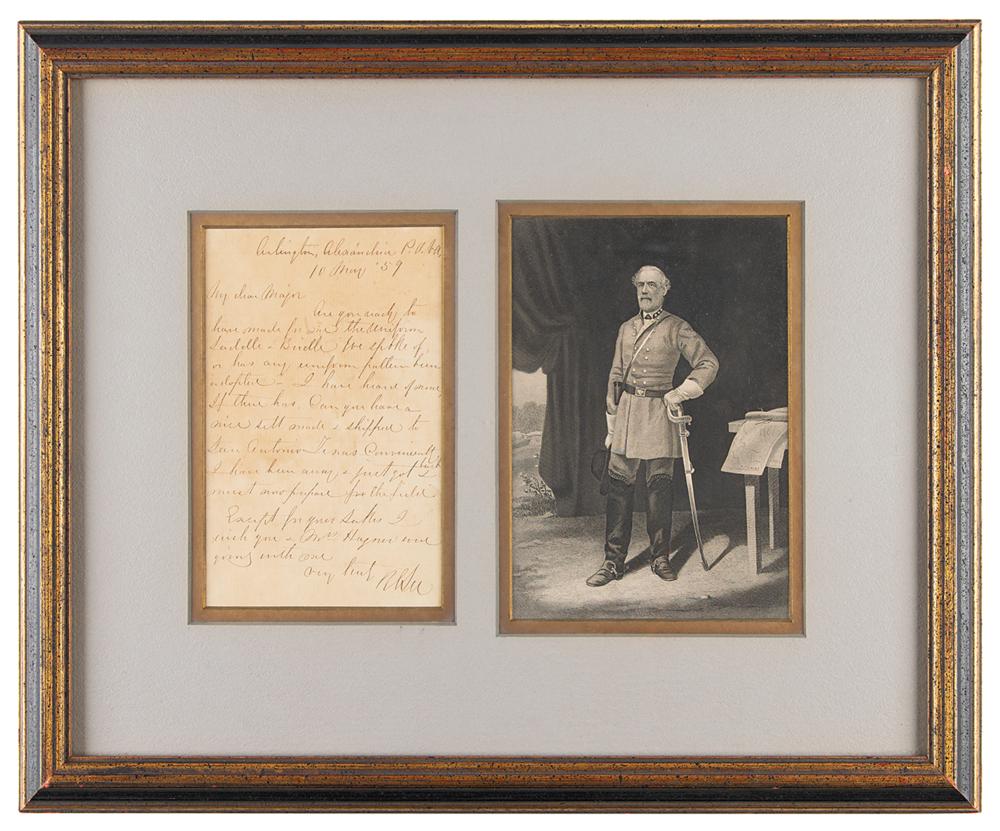 Arlington, Alexandria P.O. Va
10 May '59
My dear Major
Are you ready to
have made for me the Uniform
Saddle & Bridle we spoke of,
or has any uniform pattern been
adopted - I have heard of none
If there has. Can you have a
nice sett made & shipped to
San Antonio Texas Conveniently
I have been away, & just got back
& must now prepare for the field
Except for your sakes I
wish you & Mrs Hagner were
going with me
Very truly
R E Lee